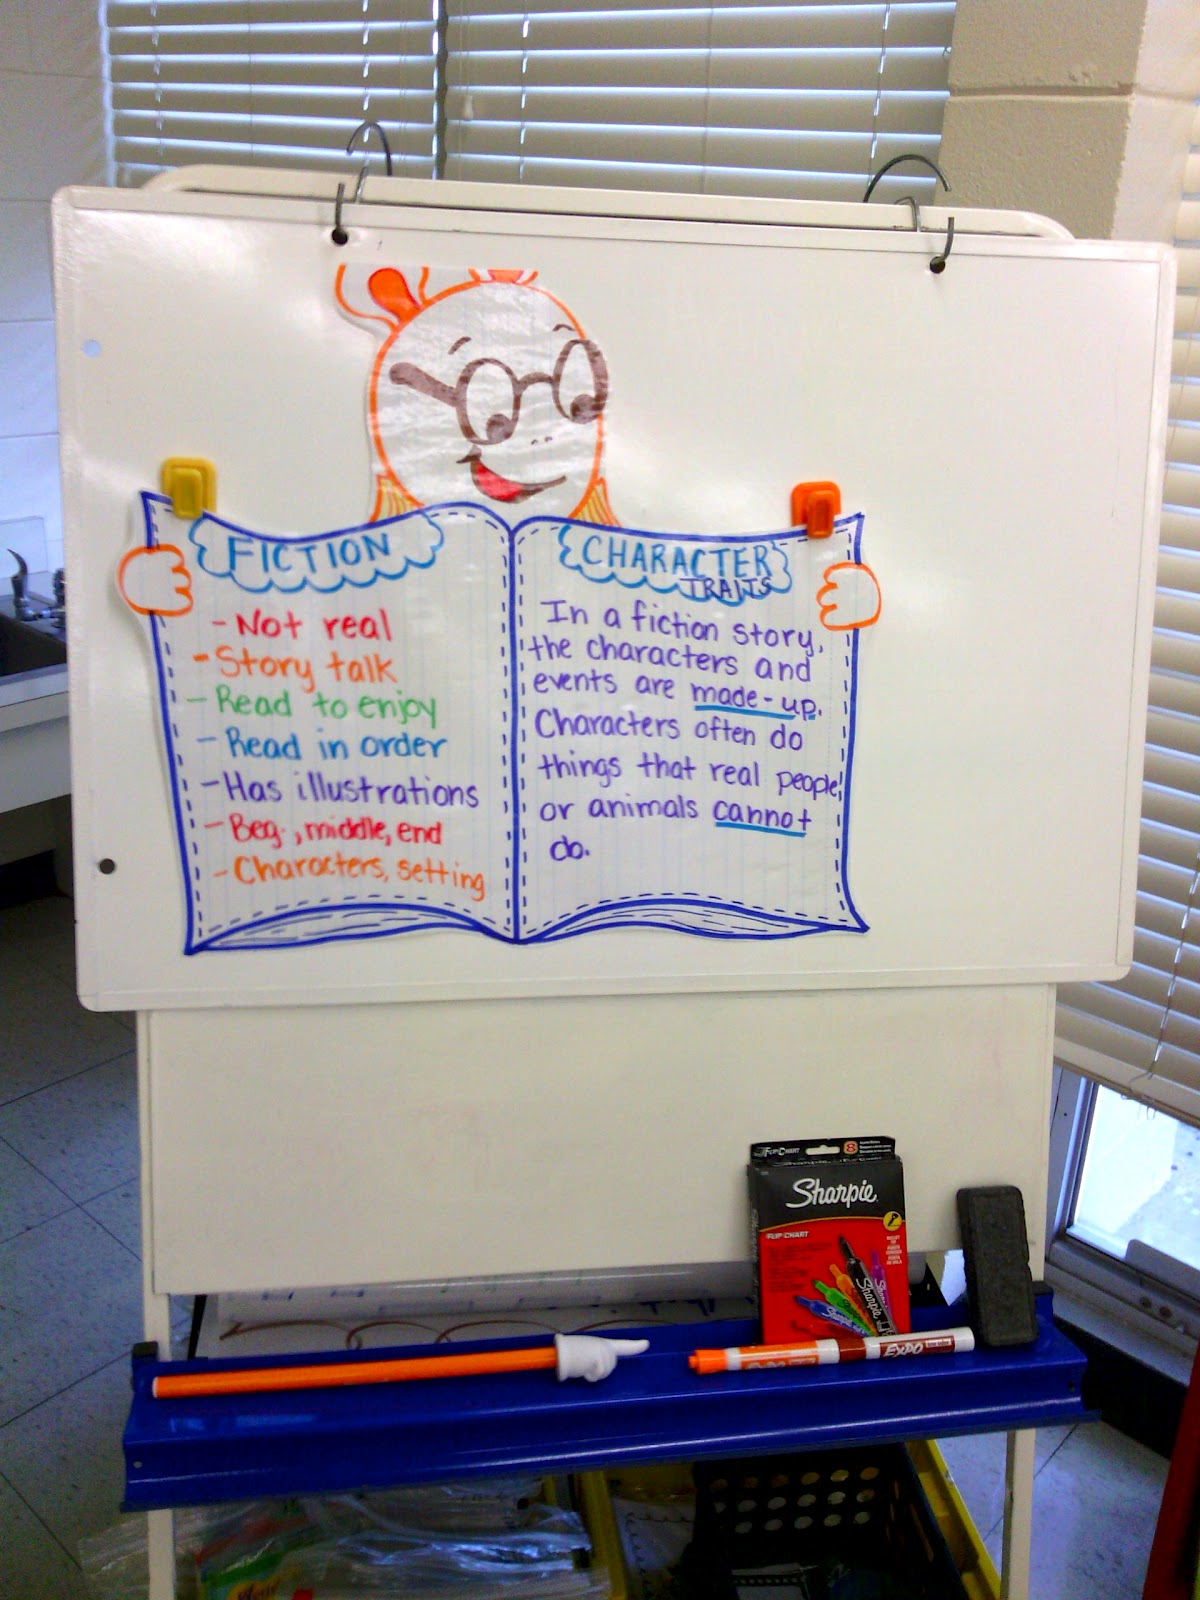 FICTION
- Not real
- Story talk
- Read to enjoy
- Read in order
- Has illustrations
- Beg., middle, end
- Characters, setting
CHARACTER
TRAITS
In a fiction story,
the characters and
events are made-up.
Characters often do
things that real people
or animals cannot
do.
FLIP CHART
8
Sharpie
FLIP CHART
Sharpie
EXPO